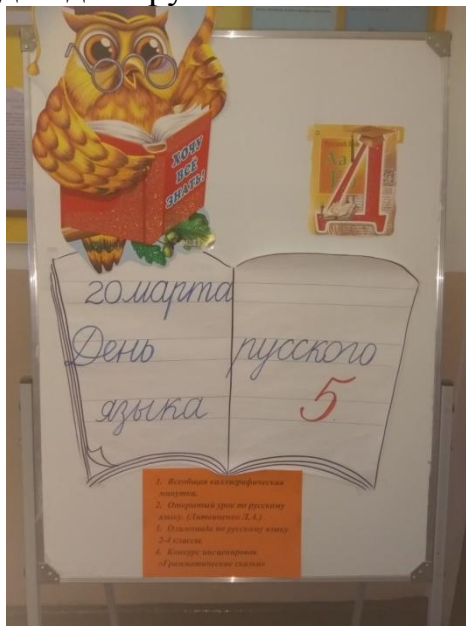 ХОЧУ
ВСЁ
ЗНАТЬ!
Д
20 марта
День русского
языка 5
1. Всеобщая каллиграфическая
минутка.
2. Открытый урок по русскому
языку. (Литвиненко Л.А.)
3. Олимпиада по русскому языку.
2-4 классы.
4. Конкурс инсценировок
«Грамматические сказки»